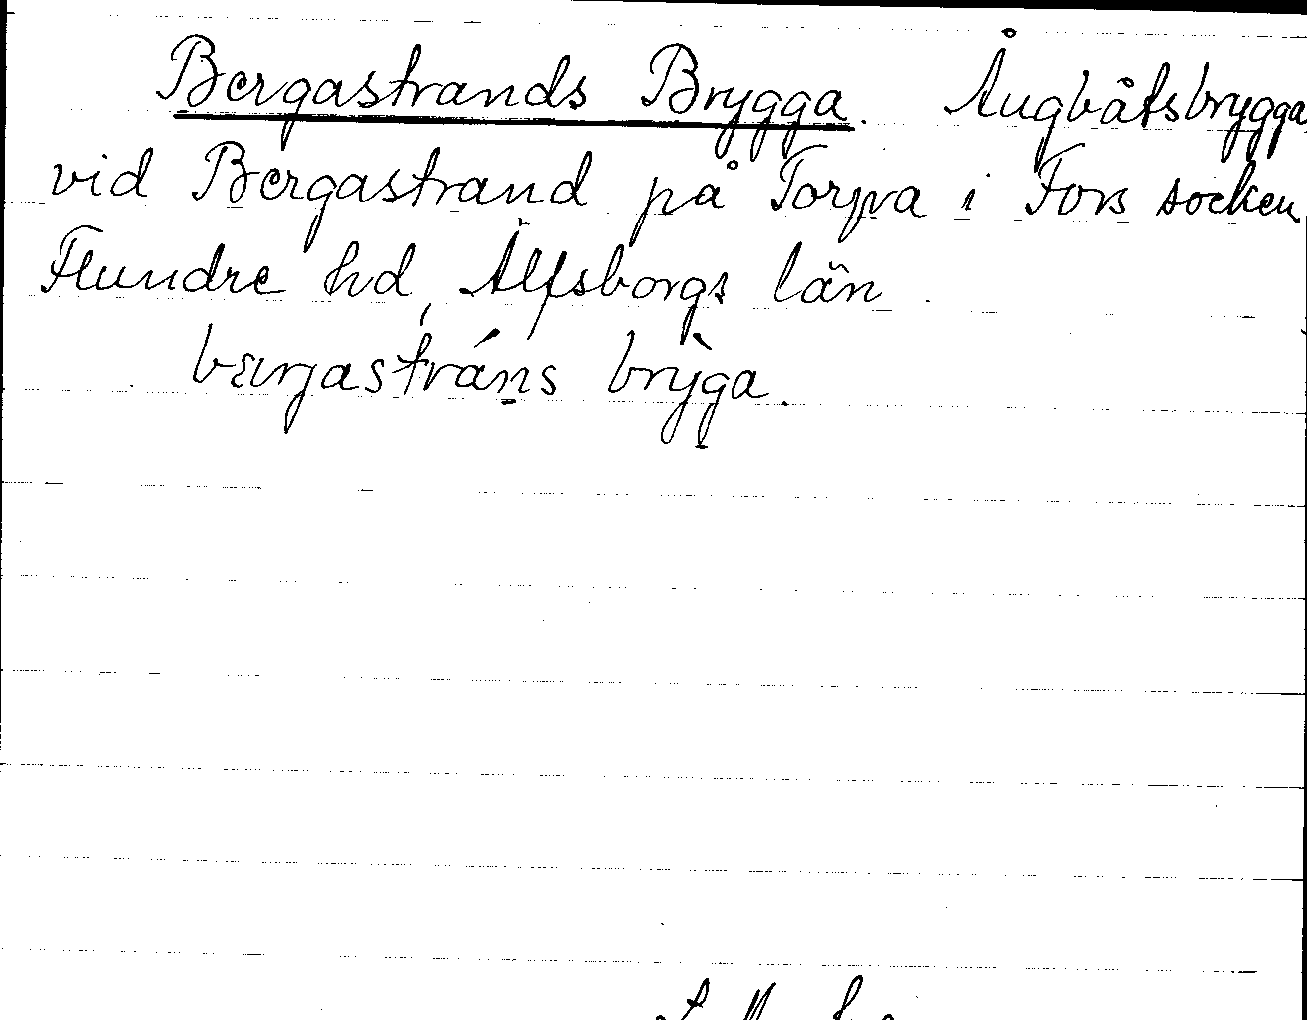 Bergastrands Brygga. Ångbåtsbrygga
vid Bergastrand på Torpa i Fors socken
Flundre hd, Älfsborgs län.
brýga.